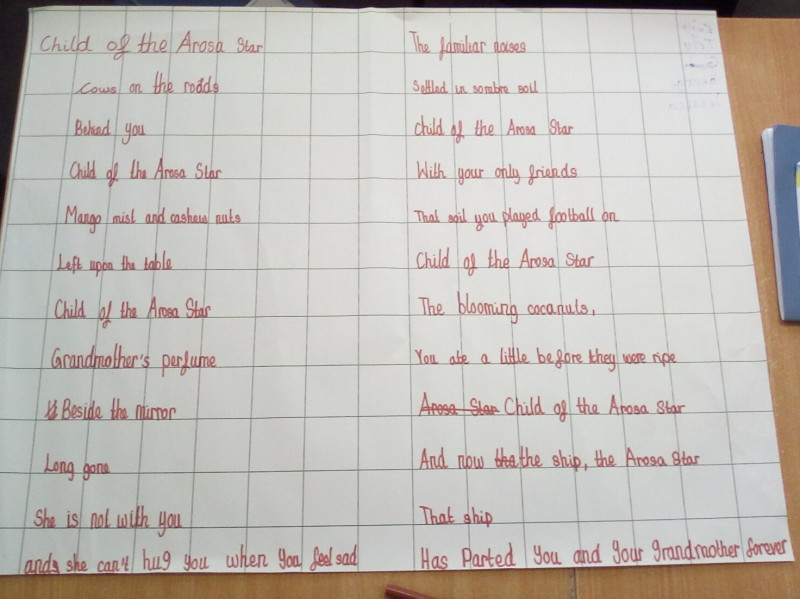 Child of the Arosa Star
Cows on the roads
Behind you
Child of the Arosa Star
Mango mist and cashew nuts
Left upon the table
Child of the Arosa Star
Grandmother's perfume
Beside the mirror
Long gone
She is not with you
and she can't hug you when you feel sad
The familiar noises
Settled in sombre soil
Child of the Arosa Star
With your only friends
That soil you played football on
Child of the Arosa Star
The blooming cocanuts,
You ate a little before they were ripe
Arosa Star Child of the Arosa Star
And now the the ship, the Arosa Star
That ship
Has Parted You and Your grandmother forever